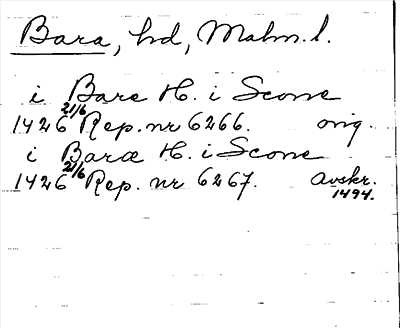 Bara, hd, Malm. l.
i Bare H. i Scone
1426 21/6 Rep. nr 6266. orig.
i Baræ H. i Scone
1426 21/6 Rep. nr 6267. Avskr. 1494.